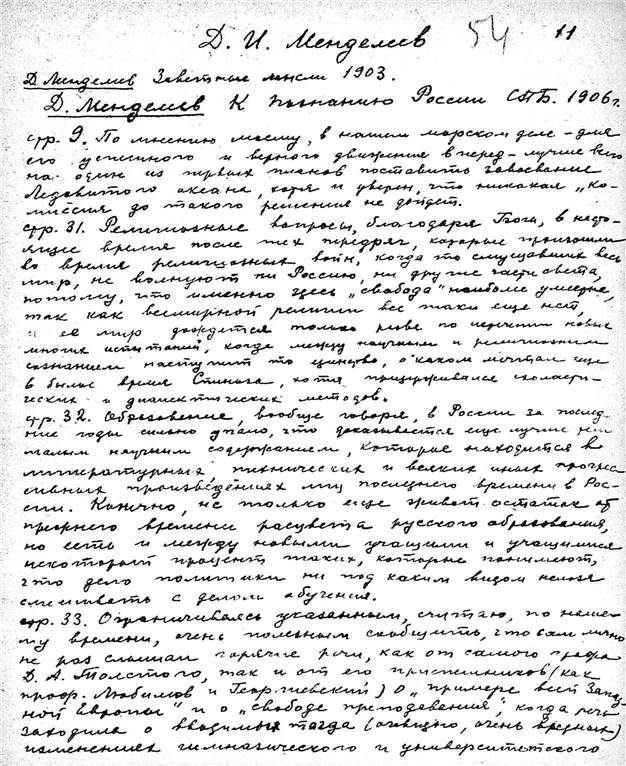 Д. И. Менделеев 54 11
Д Менделеев Заветные мысли 1903.
Д. Менделеев К познанию России СПБ. 1906 г.
стр. 9. По мнению моему, в нашем морском деле - для
его успешного и верного движения вперед - лучше всего
на один из первых планов поставить завоевание
Ледовитого океана, хотя и уверен, что никакая „ко-
миссия до такого решения не дойдет.
стр. 31. Религиозные вопросы, благодаря Бога, в насто-
ящее время после тех передряг, которые произошли
во время религиозных войн, когда то смущавших весь
мир, не волнуют ни Россию, ни другие части света,
потому, что именно здесь „свобода" наиболее умерна,
так как всемирной религии все таки еще нет,
и ее мир дождется только разве по перении новые
многих испытаний, когда между научным и религиозным
сознанием наступит то единство, о каком мечтал еще
в былое время Спиноза, хотя придерживался схоласти-
ческих и диалектических методов.
стр. 32. Образование, вообще говоря, в России за послед-
ние годы сильно упало, что доказывается еще лучше
малым научным содержанием, которые находится в
литературных, технических и всяких иных прогрес-
сивных произведениях лиц последнего времени в Рос-
сии. Конечно, не только еще живет остаток от
прежнего времени расцвета русского образования,
но есть и между новыми учащими и учащимися
некоторый процент таких, которые понимают,
что дело политики ни под каким видом нельзя
смешивать с делом обучения.
стр. 33. Ограничиваясь указанным, считаю, по наше-
му времени, очень полезным сообщить, что сам лично
не раз слышал горячие речи, как от самого графа
Д. А. Толстого, так и от его приспешников (как
проф. Любимов и Георгиевский) о „примере всей Запад-
ной Европы" и о „свободе преподавания", когда речь
заходила о вводимых тогда (очевидно, очень вредных)
изменениях гимназического и университетского